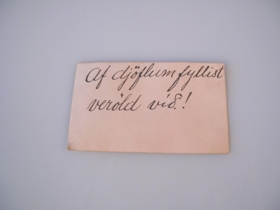 Af djöflum fyllist
veröld víð!